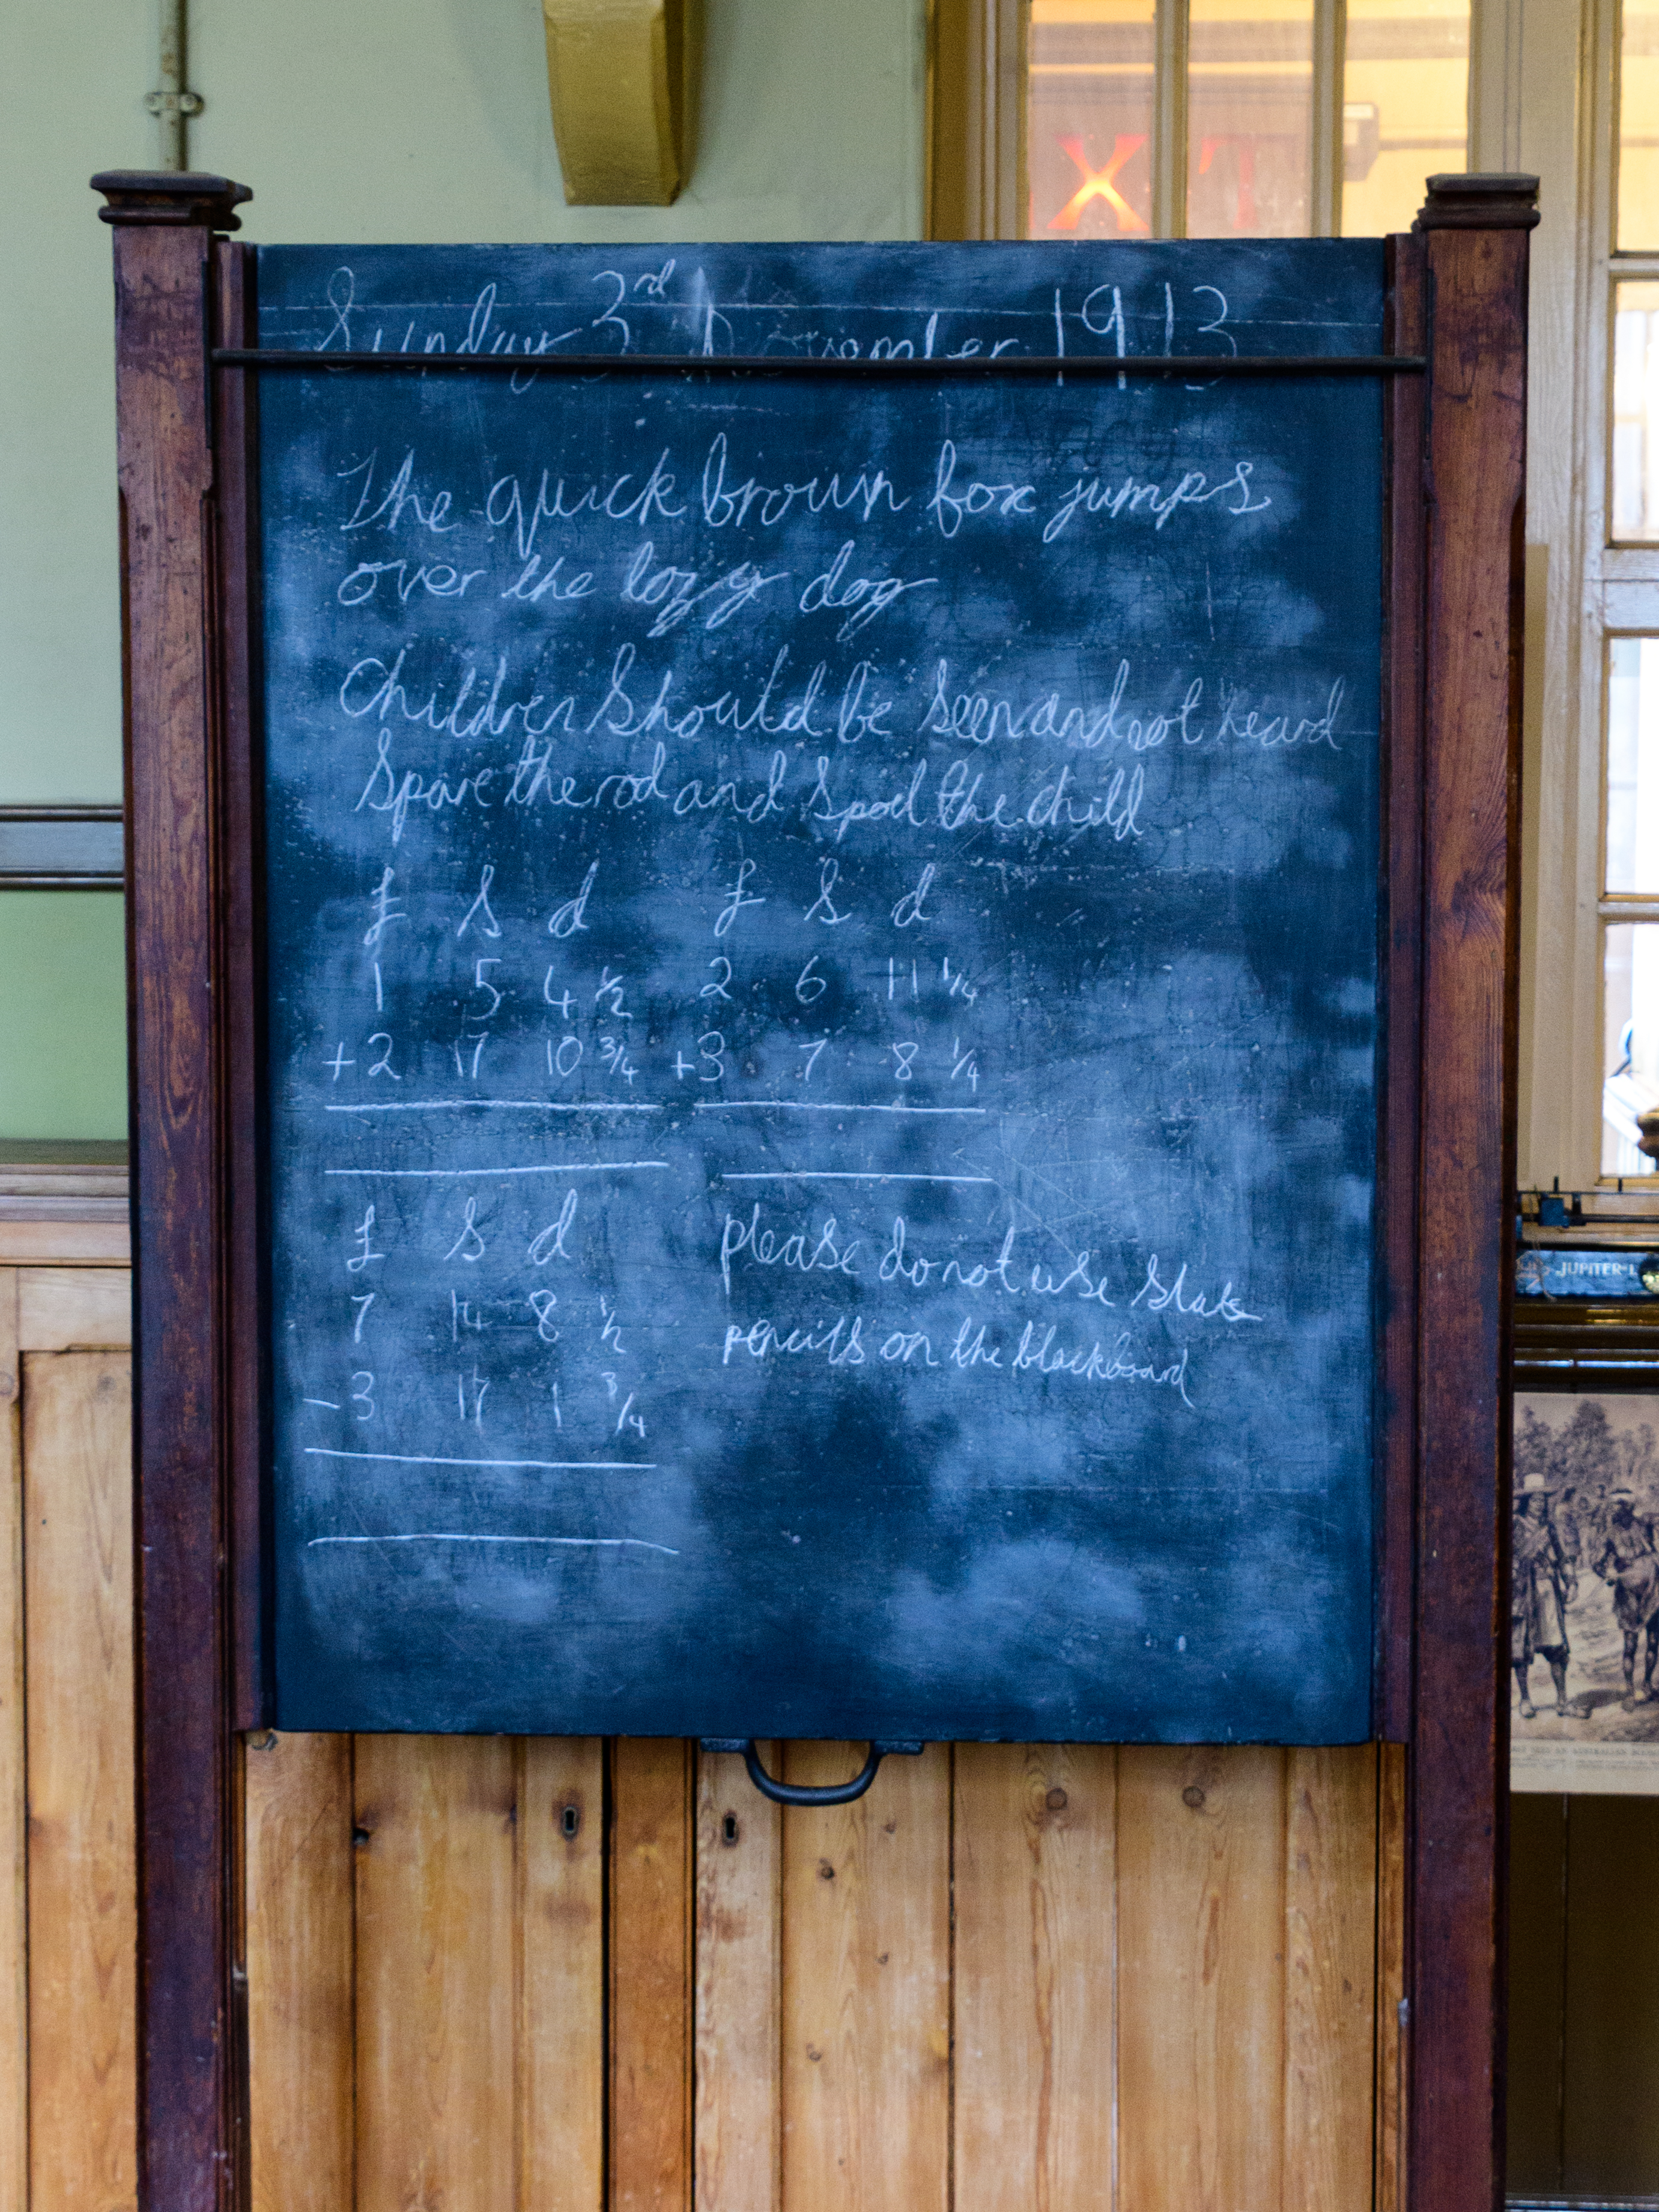 Sunday 3rd November 1913
The quick brown fox jumps
over the lazy dog
Children Should be Seen and not heard
Spare the rod and Spoil the child
£ s d £ s d
1 5 4 1/2 2 6 11 1/4
+2 17 10 3/4 +3 7 8 1/4
£ s d
7 14 8 1/2
- 3 17 1 3/4
please do not use Slate
pencils on the blackboard
XT
JUPITER-